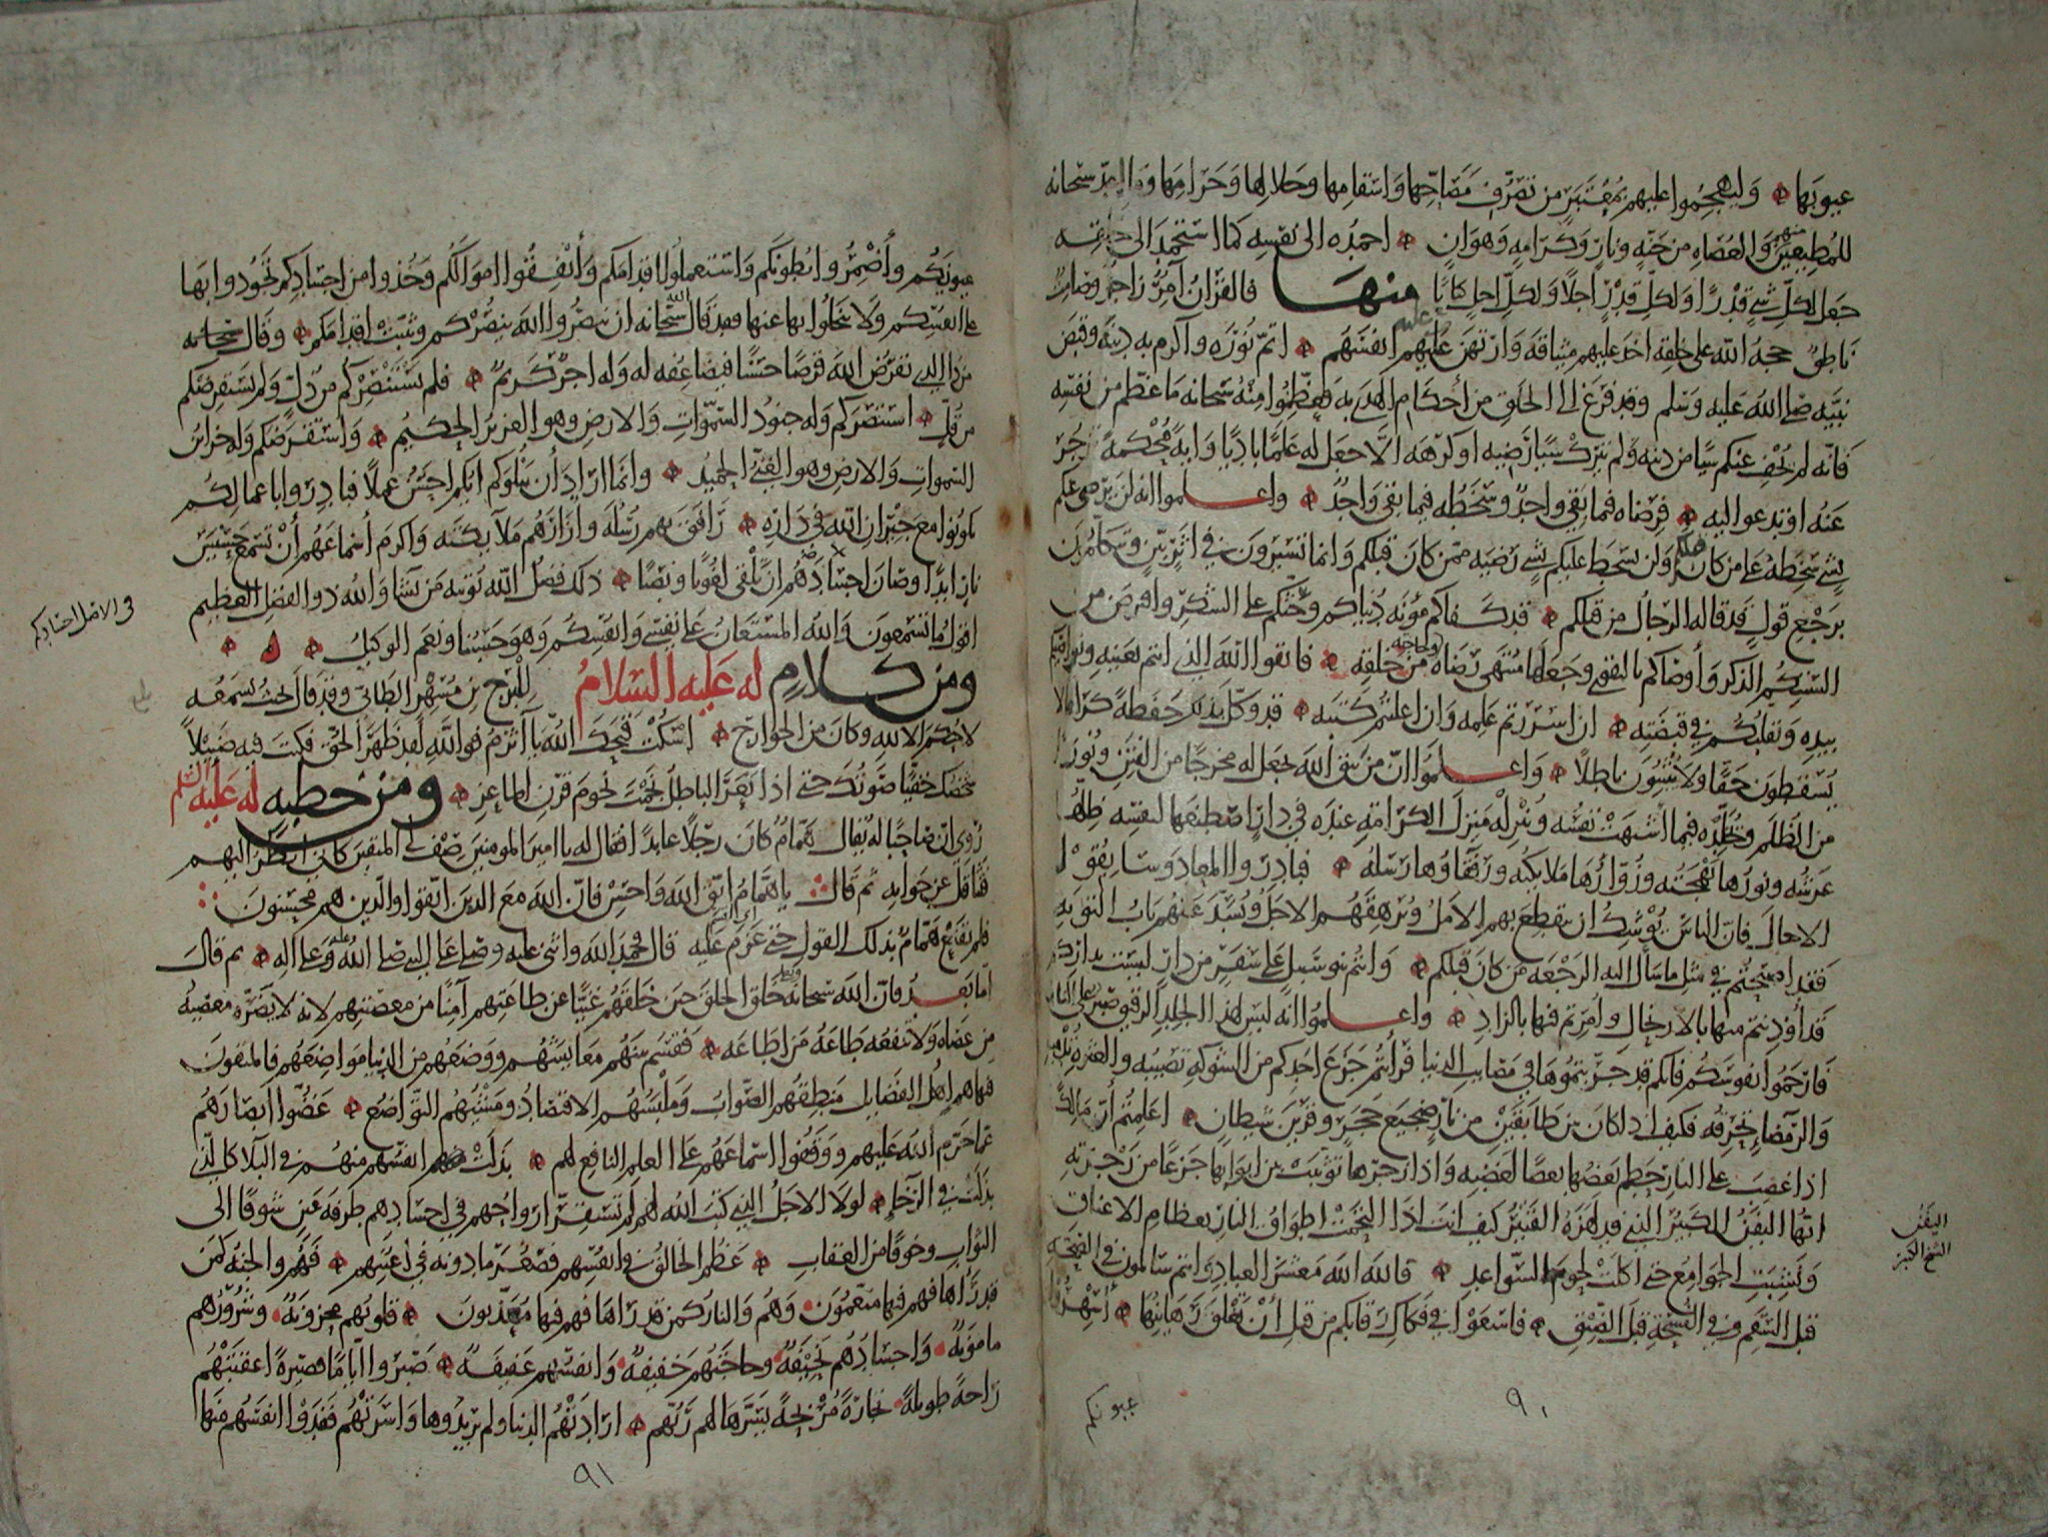 عيوبها وليهجموا عليهم بمعتبر من تصرف مصاحها واسقامها وحلالها وحرامها وما اعد سبحانه
للمطيعين منهم والعصاه من جنه ونار وكرامه وهوان احمده الى نفسه كما استحمد الى خلقه
جعل لكل شي قدرا ولكل قدر اجلا ولكل اجل كتابا منها فالقران آمر زاجر وصامت
ناطق حجه الله على خلقه اخذ عليهم ميثاقه وارتهن عليهم انفسهم اتم نوره وأكرم به دينه وقبض
نبيه صلى الله عليه وسلم وقد فرغ الى الخلق من أحكام الهدى به فعظموا منه سبحانه ما عظم من نفسه
فانه لم يخف عنكم شيا من دينه ولم يترك شيا رضيه او كرهه الا جعل له علما باديا واية محكمة تزجر
عنه او تدعوا اليه فرضاه فيما بقي واحد وسخطه فيما بقي واحد واعلموا انه لن يرضى عنكم
بشي سخطه على من كان قبلكم ولن يسخط عليكم بشي رضيه ممن كان قبلكم وانما تسيرون في اثر بين وتتكلمون
برجع قول قد قاله الرجال من قبلكم قد كفاكم مؤنه دنياكم وحثكم على الشكر وافترض من
السنتكم الذكر وأوصاكم بالتقوى وجعلها منتهى رضاه وحاجته من خلقه فاتقوا الله الذي انتم بعينه ونواصيكم
بيده وتقلبكم في قبضته ان اسررتم علمه وان اعلنتم كتبه قد وكل بذلك حفظة كراما لا
يسقطون حقا ولا يثبتون باطلا واعلموا ان من يتق الله يجعل له مخرجا من الفتن ونورا
من الظلم ويخلده فيما اشتهت نفسه وينزله منزل الكرامة عنده في دار اصطنعها لنفسه ظلها
عرشه ونورها بهجته وزوارها ملايكته ورفقاوها رسله فبادروا المعاد وسابقوا
الاجال فان الناس يوشك ان ينقطع بهم الامل ويرهقهم الاجل ويسد عنهم باب التوبه
فقد اصبحتم في مثل ما سأل اليه الرجعه من كان قبلكم وانتم بنو سبيل على سفر من دار ليست بداركم
قد أوذنتم منها بالارتحال وامرتم فيها بالزاد واعلموا انه ليس لهذا الجلد الرقيق صبر على النار
فارحموا نفوسكم فانكم قد جربتموها في مصايب الدنيا فرأيتم جزع احدكم من الشوكة تصيبه والعثرة تدميه
والرمضاء تحرقه فكيف اذا كان بين طابقين من نار ضجيع حجر وقرين شيطان اعلمتم أن مالكا
اذا غضب على النار حطم بعضها بعضا لغضبه واذا زجرها توثبت بين ابوابها جزعا من زجرته
ايها اليفن الكبير الذي قد لهزه القتير كيف انت اذا التحمت اطواق النار بعظام الاعناق
ونشبت الجوامع حتى اكلت لحوم السواعد فالله الله معشر العباد وانتم سالمون في الصحه
قبل السقم وفي الفسحة قبل الضيق فاسعوا في فكاك رقابكم من قبل أن تغلق رهاينها أسهروا
اليفن
الشيخ الكبير
عيونكم
٩٠
عيونكم وأضمروا بطونكم واستعملوا اقدامكم وأنفقوا اموالكم وخذوا من اجسادكم تجودوا بها
على انفسكم ولا تبخلوا بها عنها فقد قال الله سبحانه ان تنصروا الله ينصركم ويثبت اقدامكم وقال سبحانه
من ذا الذي يقرض الله قرضا حسنا فيضاعفه له وله اجر كريم فلم يستنصركم من ذل ولم يستقرضكم
من قل استنصركم وله جنود السموات والارض وهو العزيز الحكيم واستقرضكم وله خزائن
السموات والارض وهو الغني الحميد وانما اراد أن يبلوكم ايكم احسن عملا فبادروا باعمالكم
تكونوا مع جيران الله في داره رافق بهم رسله وازارهم ملآيكته واكرم أسماعهم أن تسمع حسيس
نار ابدا وصان اجسادهم ان تلقى لغوبا ونصبا ذلك فضل الله يوتيه من يشا والله ذو الفضل العظيم
اقول ما تسمعون والله المستعان على نفسي وانفسكم وهو حسبنا ونعم الوكيل
في الاصل اجسادكم
ومن كلام له عليه السلام للبرج بن مسهر الطائي وقد قال بحيث يسمعه
لا حكم الا لله وكان من الخوارج اسكت قبحك الله يا أثرم فوالله لقد ظهر الحق فكنت فيه ضئيلا
شخصك خفيا صوتك حتى اذا نعر الباطل نجمت نجوم قرن الماعز ومن خطبه له عليه السلم
روى ان صاحبا له يقال همام كان رجلا عابدا فقال له يا امير المومنين صف لي المتقين كاني انظر اليهم
فتثاقل عن جوابه ثم قال يا همام اتق الله واحسن فان الله مع الذين اتقوا والذين هم محسنون
فلم يقنع همام بذلك القول حتى عزم عليه قال فحمد الله واثنى عليه وصلى على النبي صلى الله عليه وعلى اله ثم قال
اما بعد فان الله سبحانه وتعالى خلق الخلق حين خلقهم غنيا عن طاعتهم آمنا من معصيتهم لانه لا يضره معصيه
من عصاه ولا تنفعه طاعة من اطاعه فقسم بينهم معايشهم ووضعهم من الدنيا مواضعهم فالمتقون
فيها هم اهل الفضايل منطقهم الصواب وملبسهم الاقتصاد ومشيهم التواضع غضوا ابصارهم
عما حرم الله عليهم ووقفوا اسماعهم على العلم النافع لهم نزلت انفسهم منهم في البلآء كالذي
نزلت في الرخاء لولا الاجل الذي كتب الله لهم لم تستقر ارواحهم في اجسادهم طرفة عين شوقا الى
الثواب وخوفا من العقاب عظم الخالق في انفسهم فصغر ما دونه في أعينهم فهم والجنة كمن
قد رآها فهم فيها منعمون وهم والنار كمن قد رآها فهم فيها معذبون قلوبهم محزونة وشرورهم
مامونة واجسادهم نحيفة وحاجتهم خفيفة وانفسهم عفيفة صبروا اياما قصيرة اعقبتهم
راحة طويلة تجارة مربحة يسرها لهم ربهم ارادتهم الدنيا ولم يريدوها واسرتهم ففدوا انفسهم منها
٩١